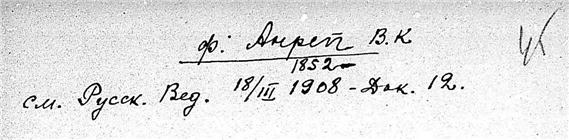 ф. Анреп В.К
1852-
см. Русск. Вед. 18/III 1908 - Док. 12.